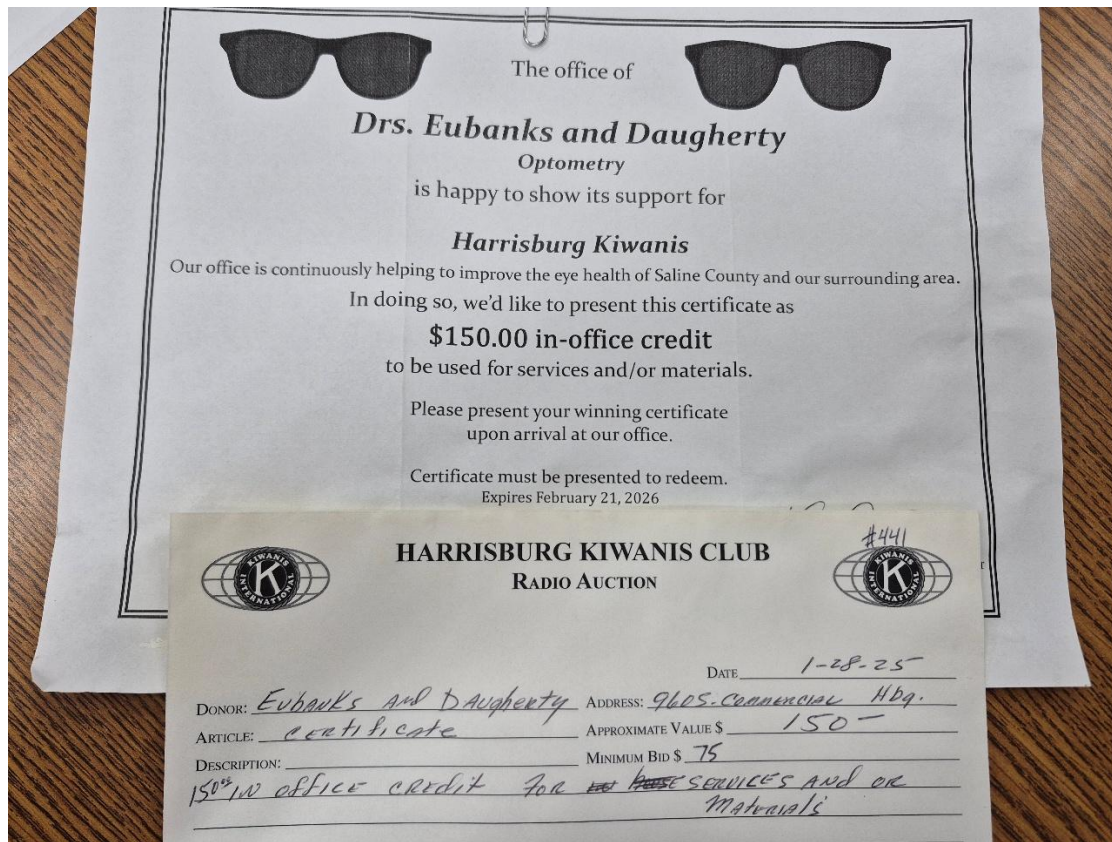 The office of
Drs. Eubanks and Daugherty
Optometry
is happy to show its support for
Harrisburg Kiwanis
Our office is continuously helping to improve the eye health of Saline County and our surrounding area.
In doing so, we'd like to present this certificate as
$150.00 in-office credit
to be used for services and/or materials.
Please present your winning certificate
upon arrival at our office.
Certificate must be presented to redeem.
Expires February 21, 2026
#441
HARRISBURG KIWANIS CLUB
RADIO AUCTION
KIWANIS K INTERNATIONAL
KIWANIS K INTERNATIONAL
DATE 1-28-25
DONOR: Eubanks AND DAugherty ADDRESS: 960 S. Commercial Hbg.
ARTICLE: certificate APPROXIMATE VALUE $ 150-
DESCRIPTION: MINIMUM BID $ 75
150⁰⁰ IN office credit FOR SERVICES AND OR
Materials